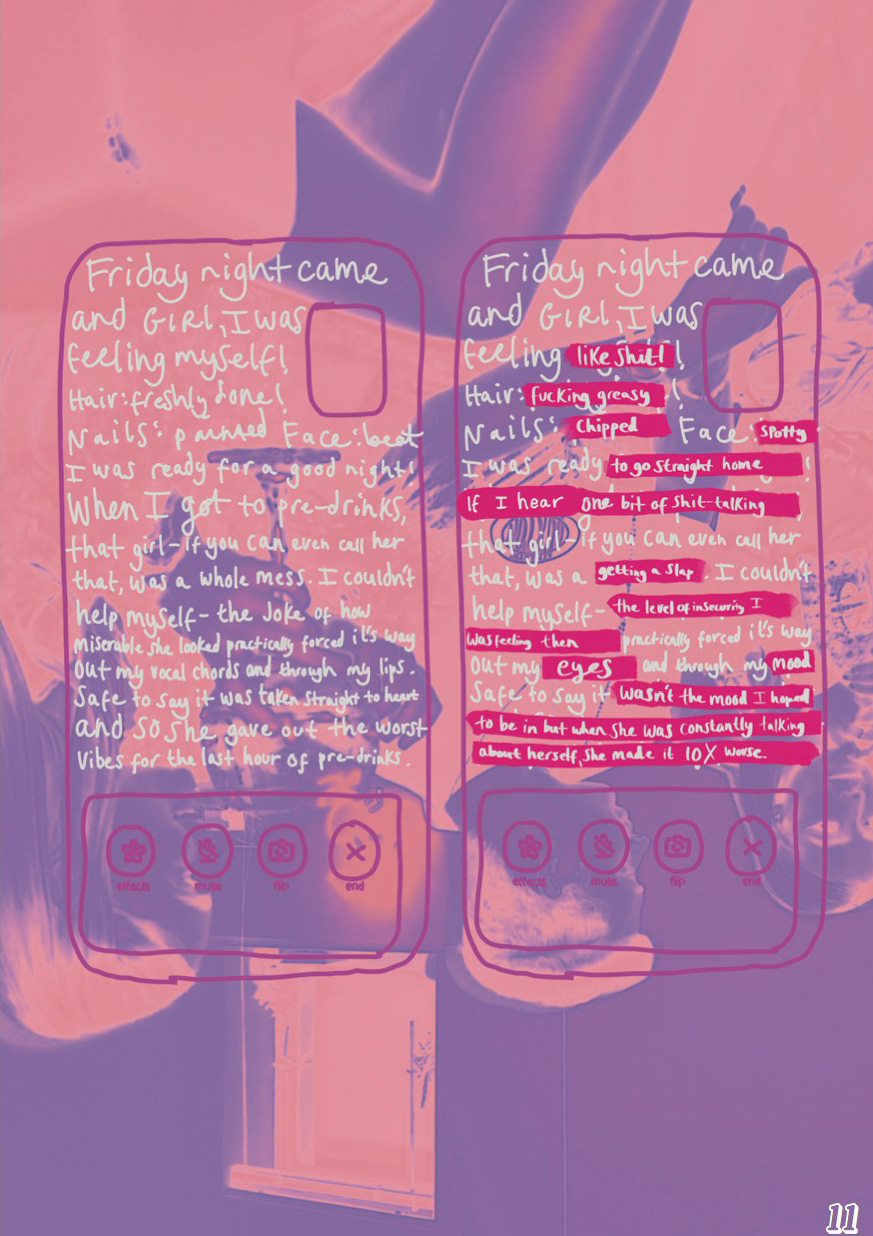 Friday night came
and GIRL, I was
feeling myself!
Hair: freshly done!
Nails: painted Face: beat
I was ready for a good night!
When I got to pre-drinks,
that girl- if you can even call her
that, was a whole mess. I couldn't
help myself- the joke of how
miserable she looked practically forced it's way
out my vocal chords and through my lips.
Safe to say it was taken straight to heart
and so she gave out the worst
vibes for the last hour of pre-drinks.
effects mute flip end
Friday night came
and GIRL, I was
feeling like shit!!
Hair: fucking greasy!
Nails: Chipped Face: Spotty
I was ready to go straight home!
If I hear one bit of shit-talking
that girl- if you can even call her
that, was a getting a slap. I couldn't
help myself- the level of insecurity I
was feeling then practically forced it's way
out my eyes and through my mood
Safe to say it wasn't the mood I hoped
to be in but when she was constantly talking
about herself, she made it 10X worse.
effects mute flip end
11